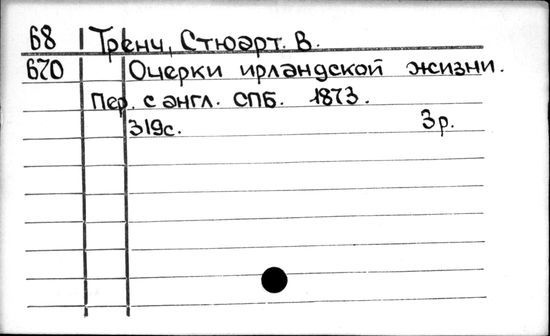 68 Тренч, Стюарт. В.
670 Очерки ирландской жизни.
Пер. с англ. СПБ. 1873.
319с. 3р.